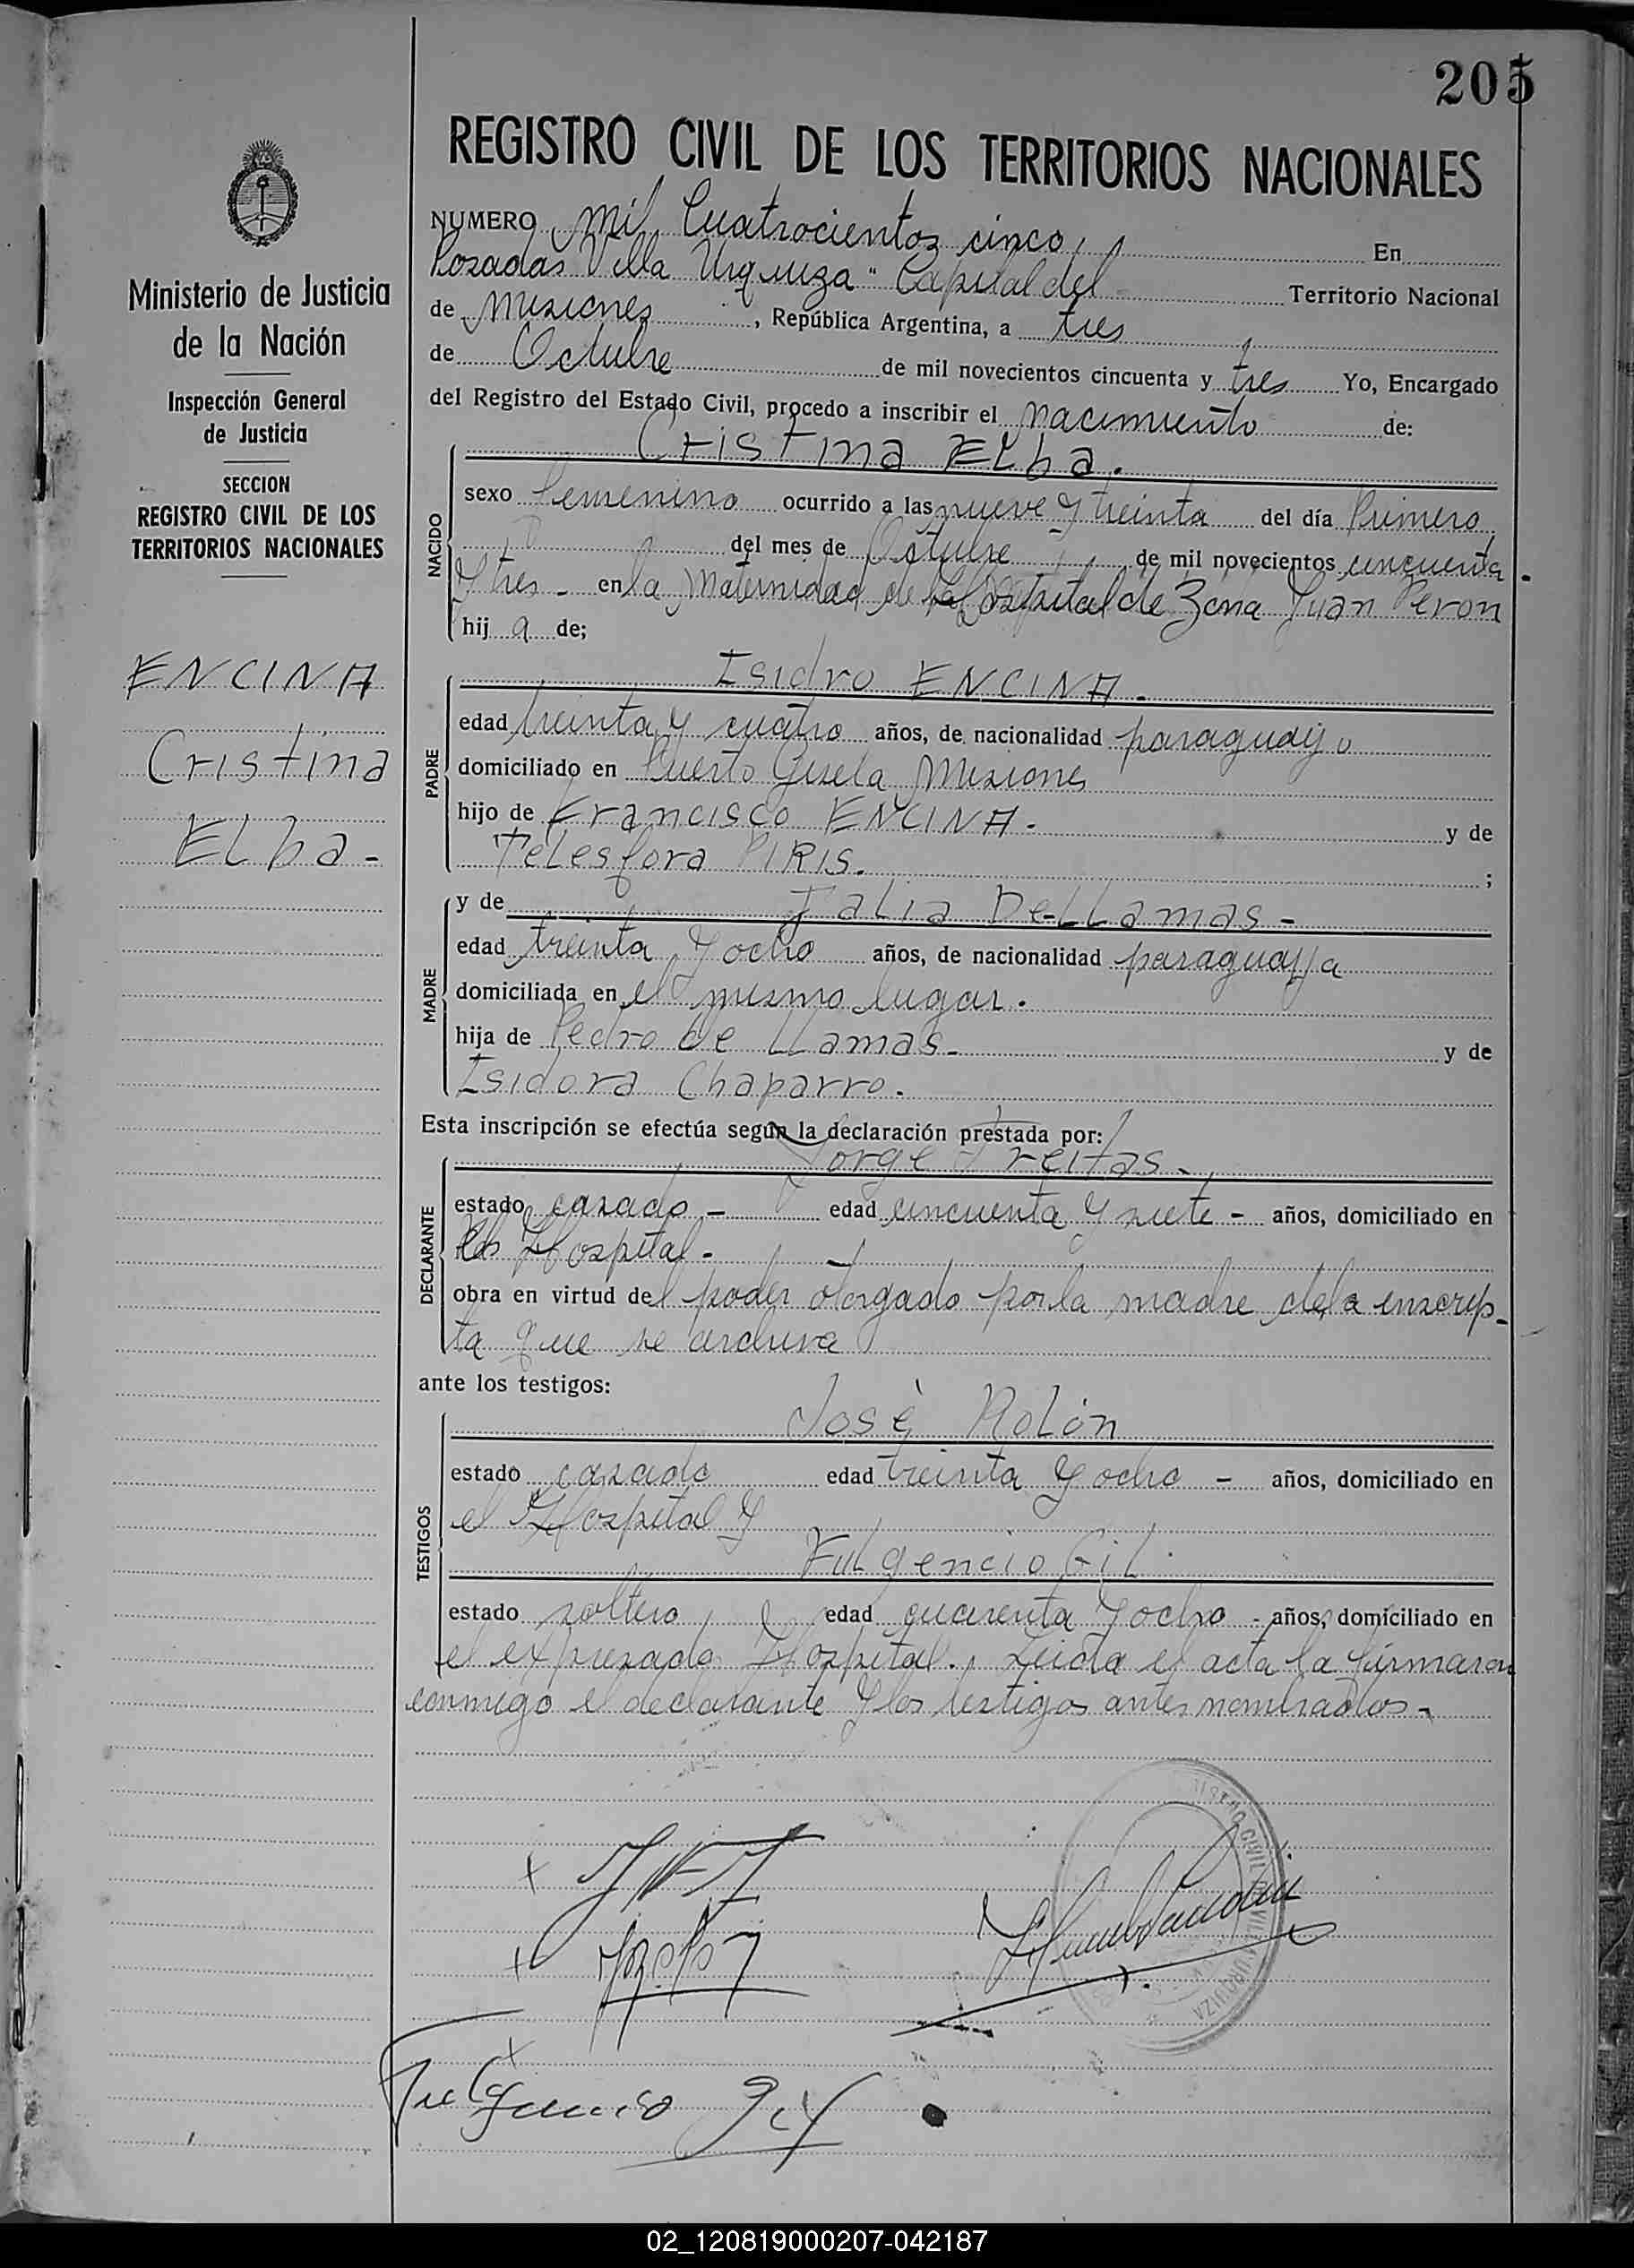 205
REGISTRO CIVIL DE LOS TERRITORIOS NACIONALES
NUMERO mil Cuatrocientos cinco, En
Posadas Villa Urquiza" Capital del Territorio Nacional
de Misiones, República Argentina, a tres
de Octubre de mil novecientos cincuenta y tres Yo, Encargado
del Registro del Estado Civil, procedo a inscribir el nacimiento de:
Ministerio de Justicia
de la Nación
Inspección General
de Justicia
SECCION
REGISTRO CIVIL DE LOS
TERRITORIOS NACIONALES
ENCINA
Cristina
Elba-
NACIDO
Cristina Elba.
sexo femenino ocurrido a las nueve y treinta del día Primero
del mes de Octubre de mil novecientos cincuenta
y tres - en la Maternidad de Hospital de Zona Juan Peron
hij a de;
PADRE
Isidro ENCINA.-
edad treinta y cuatro años, de nacionalidad paraguayo
domiciliado en Puerto Gisela Misiones
hijo de Francisco ENCINA. y de
Telesfora PIRIS. ;
MADRE
y de Talia De-LLamas-
edad treinta y ocho años, de nacionalidad paraguaya
domiciliada en el mismo lugar.
hija de Pedro de LLamas- y de
Isidora Chaparro.
Esta inscripción se efectúa según la declaración prestada por:
DECLARANTE
Jorge Freitas.
estado casado - edad cincuenta y siete - años, domiciliado en
Hospital-
obra en virtud del poder otorgado por la madre de la inscrip-
ta que se archiva
ante los testigos:
TESTIGOS
José Rolón
estado casado edad treinta y ocho - años, domiciliado en
el Hospital y
Fulgencio Gil.
estado soltero, edad cuarenta y ocho - años, domiciliado en
el expresado Hospital. Leida el acta la firmaron
conmigo el declarante y los testigos antes nombrados-
Fulgencio Gil
02_120819000207-042187